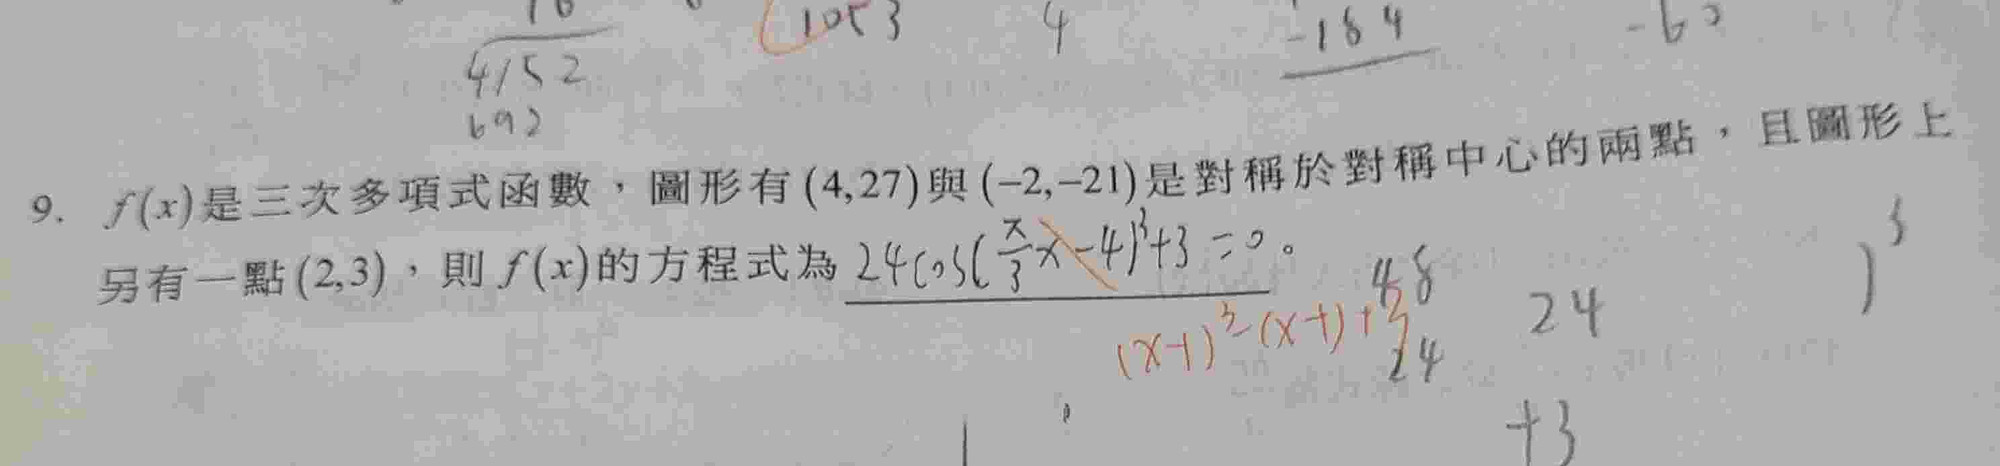 4152
1053
4
-184
692
9. f(x)是三次多項式函數，圖形有(4,27)與(−2,−21)是對稱於對稱中心的兩點，且圖形上
另有一點(2,3)，則f(x)的方程式為 24cos(π/3 x-4)³+3=0。
48
24
)³
(x-1)³-(x-1)+3
24
+3